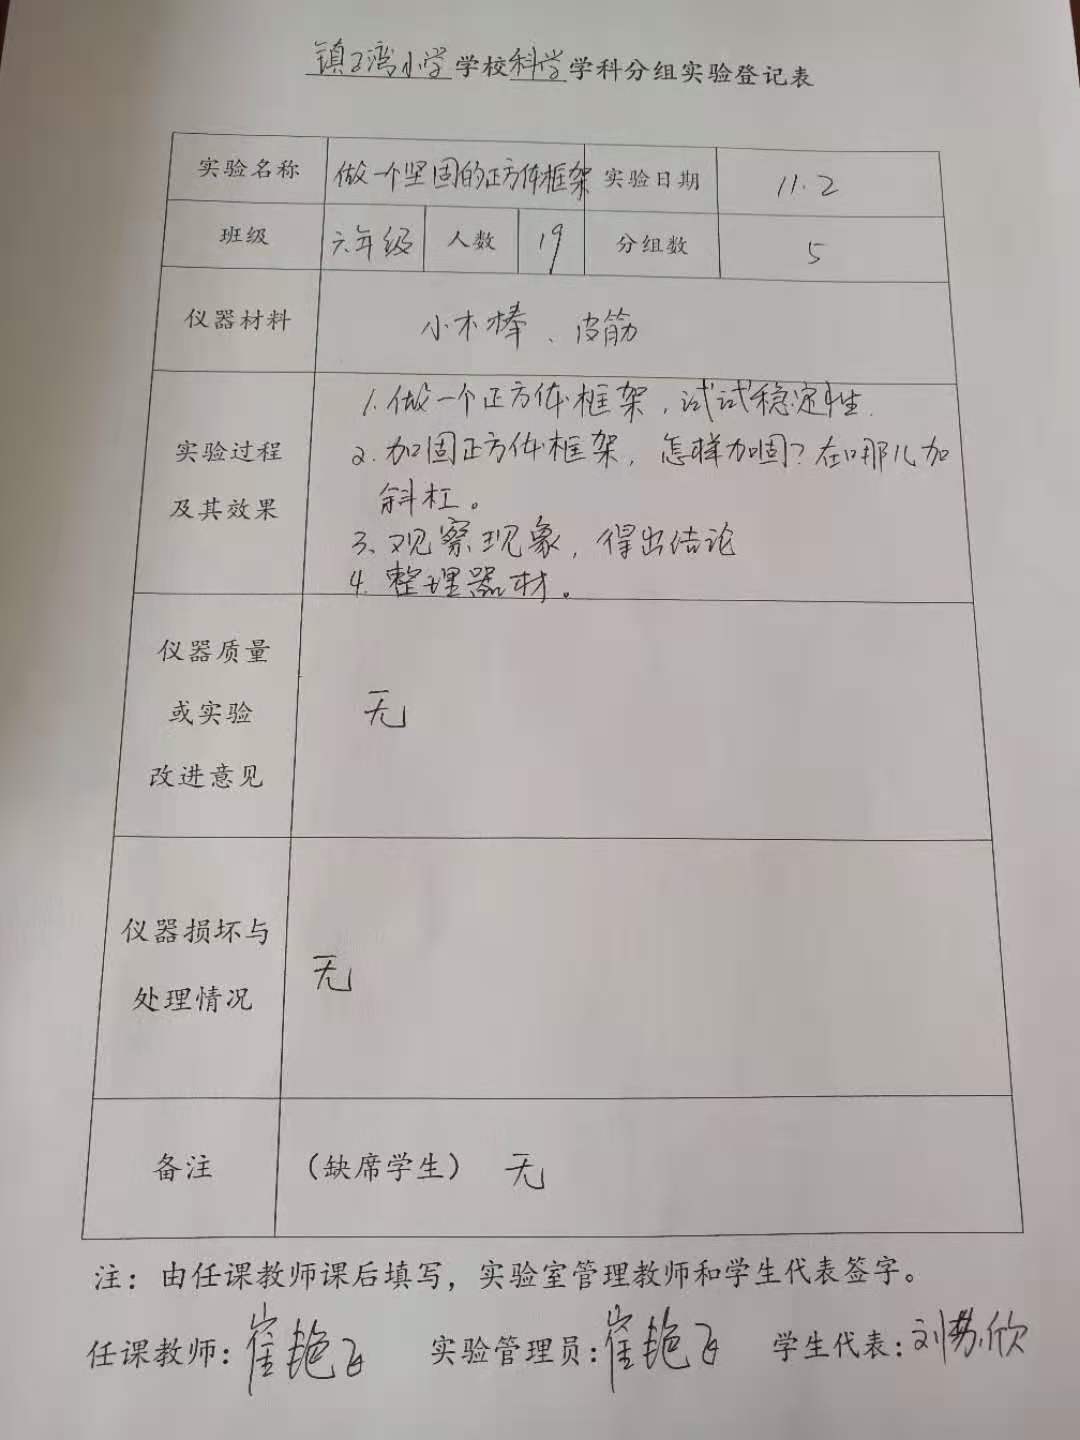 镇子湾小学学校科学学科分组实验登记表
实验名称 做一个坚固的正方体框架 实验日期 11.2
班级 六年级 人数 19 分组数 5
仪器材料 小木棒、皮筋
实验过程
及其效果
1. 做一个正方体框架，试试稳定性.
2. 加固正方体框架，怎样加固？在哪儿加
斜杠。
3、观察现象，得出结论
4. 整理器材。
仪器质量
或实验
改进意见
无
仪器损坏与
处理情况
无
备注 （缺席学生） 无
注：由任课教师课后填写，实验室管理教师和学生代表签字。
任课教师：崔艳飞 实验管理员：崔艳飞 学生代表：刘欣